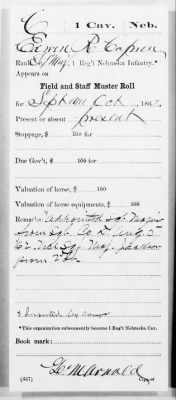 C 1 Cav. Neb.
Edwin R Capron
Rank Sgt Maj, 1 Reg't Nebraska Infantry.*
Appears on
Field and Staff Muster Roll
for Sept and Oct, 186
Present or absent present
Stoppage, $ 100 for
Due Gov't, $ 100 for
Valuation of horse, $ 100
Valuation of horse equipments, $ 100
Remarks: Appointed Sgt Major
from Sgt Co
from
*This organization subsequently became 1 Reg't Nebraska Cav.
Book mark:
G. M. Arnold
(857) Copyist.